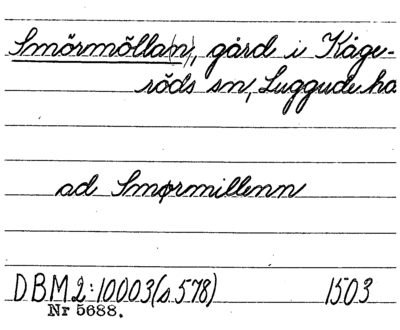 Smörmölla(n), gård i Kåge-
röds sn, Luggude hd
ad Smørmillenn
DBM 2:10003 (s 578) 1503
Nr 5688.